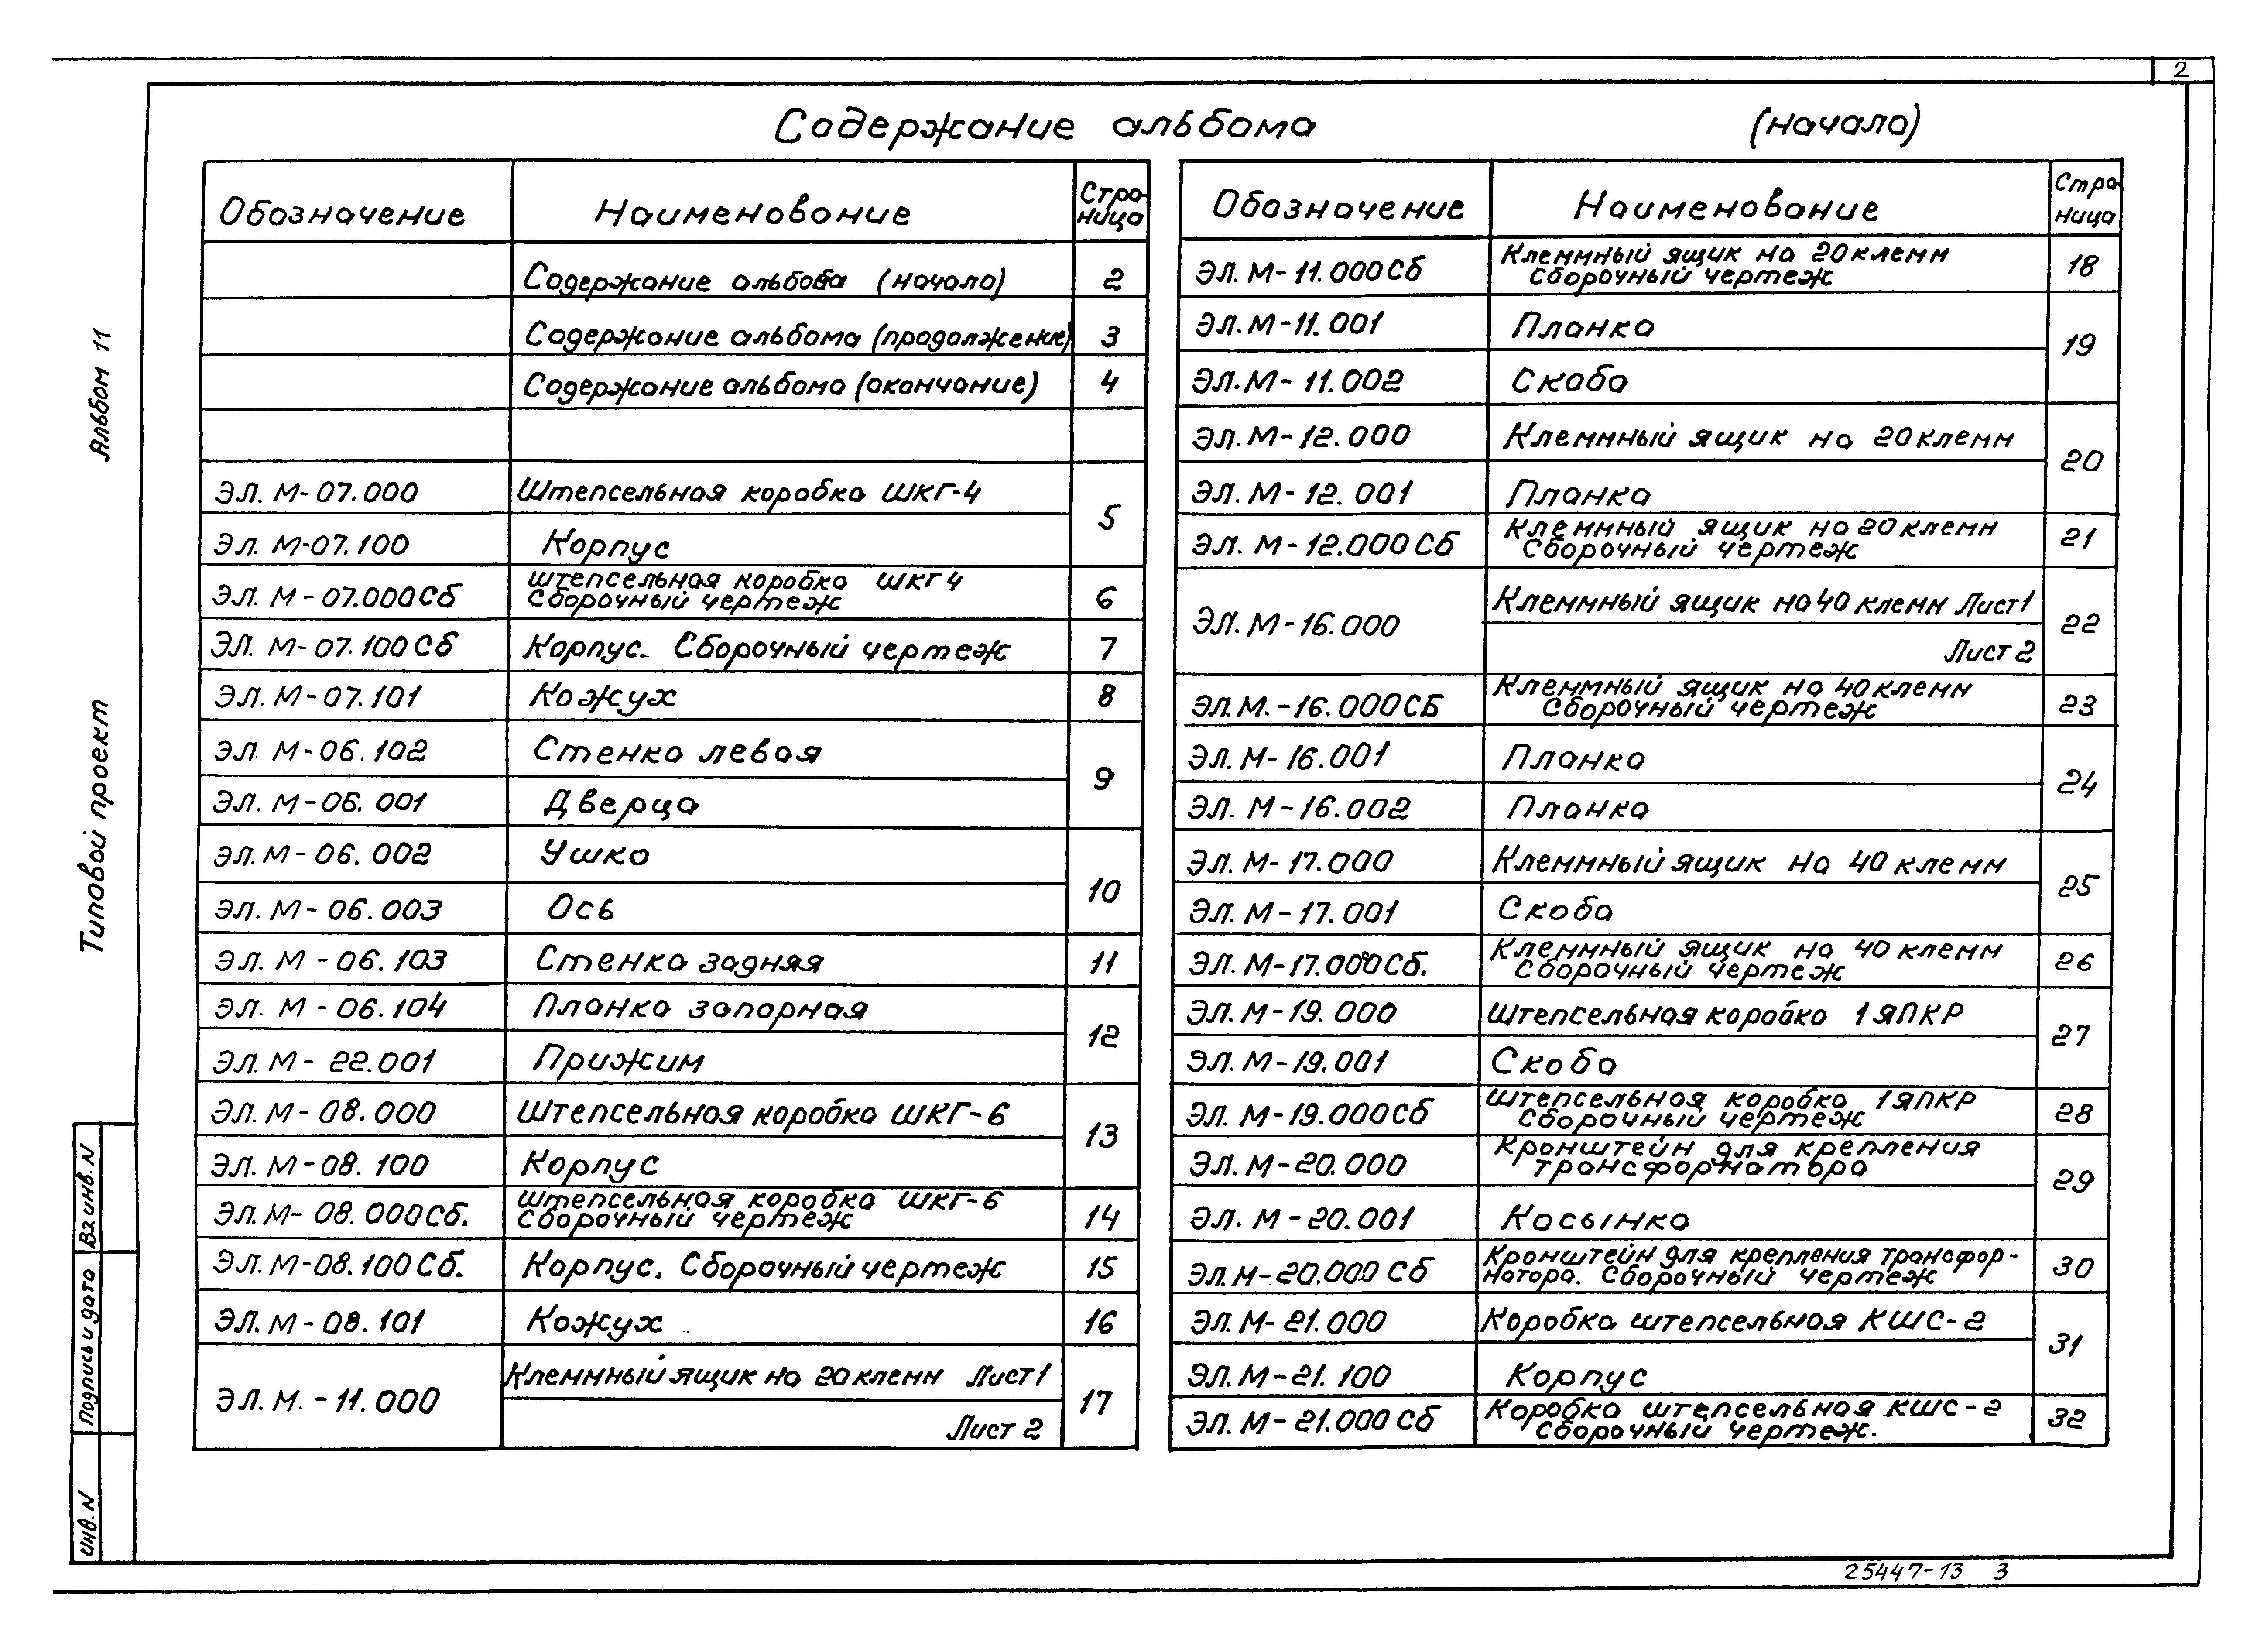 2
Содержание альбома (начало)
Альбом 11
Типовой проект
Обозначение Наименование Стра-
ница
Содержание альбова (начало) 2
Содержание альбома (продолжение) 3
Содержание альбома (окончание) 4
ЭЛ. М-07.000 Штепсельная коробка ШКГ-4
5
ЭЛ. М-07.100 Корпус
ЭЛ. М-07.000Сб Штепсельная коробка ШКГ 4
Сборочный чертеж 6
ЭЛ. М-07.100 Сб Корпус. Сборочный чертеж 7
ЭЛ. М-07.101 Кожух 8
ЭЛ. М-06.102 Стенка левая
9
ЭЛ. М-06.001 Дверца
ЭЛ. М-06.002 Ушко
10
ЭЛ. М-06.003 Ось
ЭЛ. М-06.103 Стенка задняя 11
ЭЛ. М-06.104 Планка запорная
12
ЭЛ. М-22.001 Прижим
ЭЛ. М-08.000 Штепсельная коробка ШКГ-6
13
ЭЛ. М-08.100 Корпус
ЭЛ. М-08.000Сб. Штепсельная коробка ШКГ-6
Сборочный чертеж 14
ЭЛ. М-08.100 Сб. Корпус. Сборочный чертеж 15
ЭЛ. М-08.101 Кожух 16
ЭЛ. М.-11.000 Клеммный ящик на 20 клемм Лист 1
17
Лист 2
Обозначение Наименование Стра-
ница
ЭЛ. М-11.000 Сб Клеммный ящик на 20 клемм
Сборочный чертеж 18
ЭЛ. М-11.001 Планка
19
ЭЛ. М-11.002 Скоба
ЭЛ. М-12.000 Клеммный ящик на 20 клемм
20
ЭЛ. М-12.001 Планка
ЭЛ. М-12.000 Сб Клеммный ящик на 20 клемм
Сборочный чертеж 21
ЭЛ. М-16.000 Клеммный ящик на 40 клемм Лист 1
22
Лист 2
ЭЛ. М.-16.000 СБ Клеммный ящик на 40 клемм
Сборочный чертеж 23
ЭЛ. М-16.001 Планка
24
ЭЛ. М-16.002 Планка
ЭЛ. М-17.000 Клеммный ящик на 40 клемм
25
ЭЛ. М-17.001 Скоба
ЭЛ. М-17.000 Сб. Клеммный ящик на 40 клемм
Сборочный чертеж 26
ЭЛ. М-19.000 Штепсельная коробка 1ЯПКР
27
ЭЛ. М-19.001 Скоба
ЭЛ. М-19.000Сб Штепсельная коробка 1ЯПКР
Сборочный чертеж 28
ЭЛ. М-20.000 Кронштейн для крепления
трансформатора
29
ЭЛ. М-20.001 Косынка
ЭЛ. М-20.000 Сб Кронштейн для крепления трансфор-
матора. Сборочный чертеж 30
ЭЛ. М-21.000 Коробка штепсельная КШС-2
31
ЭЛ. М-21.100 Корпус
ЭЛ. М-21.000 Сб Коробка штепсельная КШС-2
Сборочный чертеж. 32
Вз инв. N
Подпись и дата
инв. N
25447-13 3